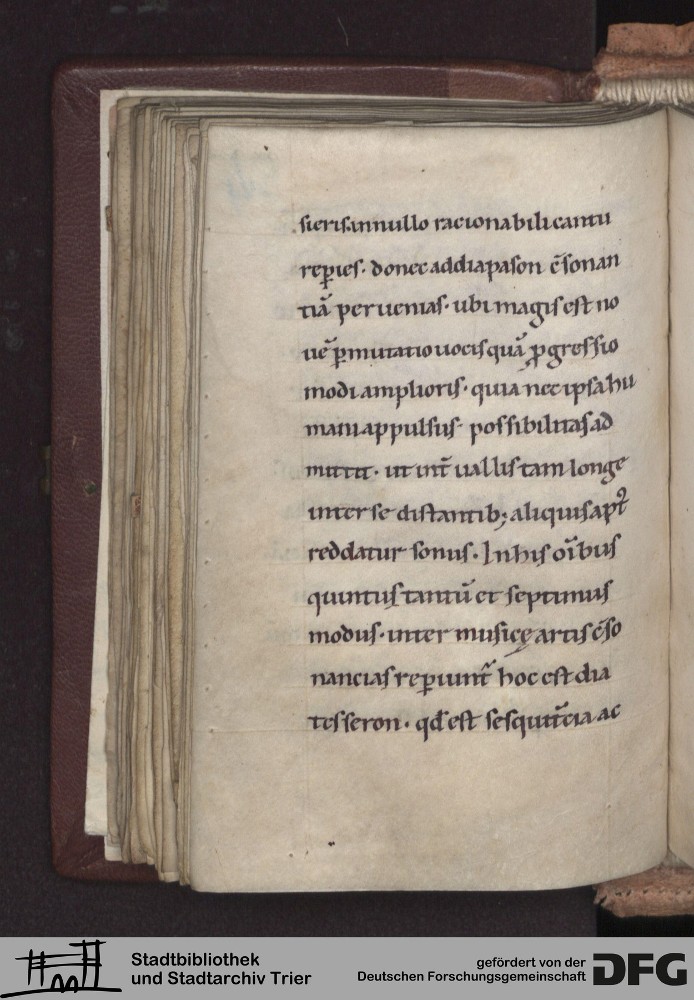 sieris. in nullo racionabili cantu
rep̱ies · donec ad diapason c̄sonan
tiā per uenias · ubi magis est no
ue ꝑmutatio uocis quā ꝓgressio
modi amplioris · quia nec ipsa hu
mani appulsus possibilitas ad
mittit · ut int̄ uallis tam longe
inter se distantib; aliquis apt᷒
reddatur sonus · In his oı̄bus
quintus tantū et septimus
modus · inter musicę artis c̄so
nancias reꝑiunt̄ hoc est dia
tesseron · qđ est sesquit̄cia ac
Stadtbibliothek
und Stadtarchiv Trier
gefördert von der
Deutschen Forschungsgemeinschaft
DFG